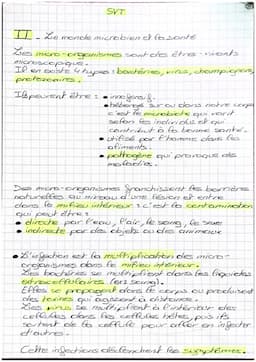 SVT
II - Le monde microbien et la santé
Les micro-organismes sont des êtres-vivants
microscopique.
Il en existe 4 types : bactéries, virus, champignons,
protozoaires.
Ils peuvent être : • inofensif.
• hébergé sur ou dans notre corps
c'est le microbiote qui varit
selon les individus et qui
contribut à la bonne santé.
• utilisé par l'homme dans les
aliments.
• pathogène qui provoque des
maladies.
Des micro-organismes franchissent les barrières
naturelles au niveau d'une lésion et entre
dans le milieu intérieur : c'est la contamination
qui peut être :
• directe par l'eau, l'air, le sang, le sexe
• indirecte par des objets ou des animaux
• L'infection est la multiplication des micro-
organismes dans le milieu intérieur.
Les bactéries se multiplient dans les liquides
extracellulaires (ex : sang).
Elles se propagent dans le corps ou produisent
des toxines qui agissent à distance.
Les virus se multiplient à l'intérieur des
cellules dans les cellules hôtes, puis ils
sortent de la cellule pour aller en infecter
d'autres.
Cette infections déclenchent les symptômes.